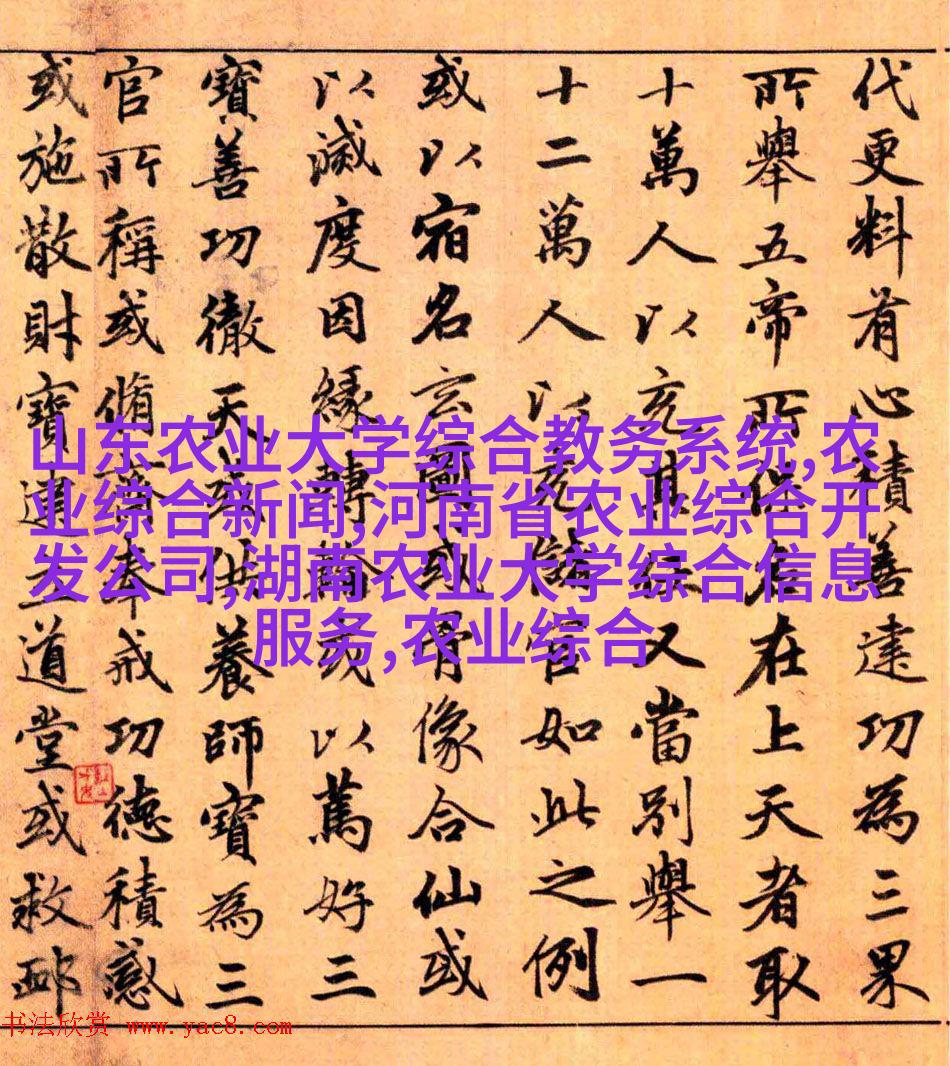 代更料有心積善建功為三果
所舉五帝所保者在上天者取
十萬人以充其任又當別舉一
十二萬人以充諸官如此之例
或以宿名玄圖或骨像合仙或
以滅度因緣轉輪或以篤好三
寶善功徹天或供養師寶為三
官所稱或脩齋奉戒功德積感
或施散財寶建立道堂或救卹
山东农业大学综合教务系统,农
业综合新闻,河南省农业综合开
发公司,湖南农业大学综合信息
服务,农业综合
书法欣赏 www.yac8.com